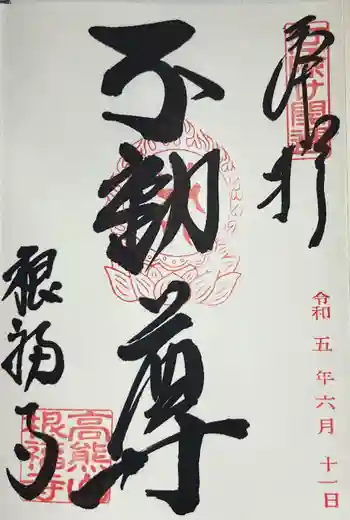 奉拝
令和五年六月十一日
不動尊
根福寺
高熊山
根福寺